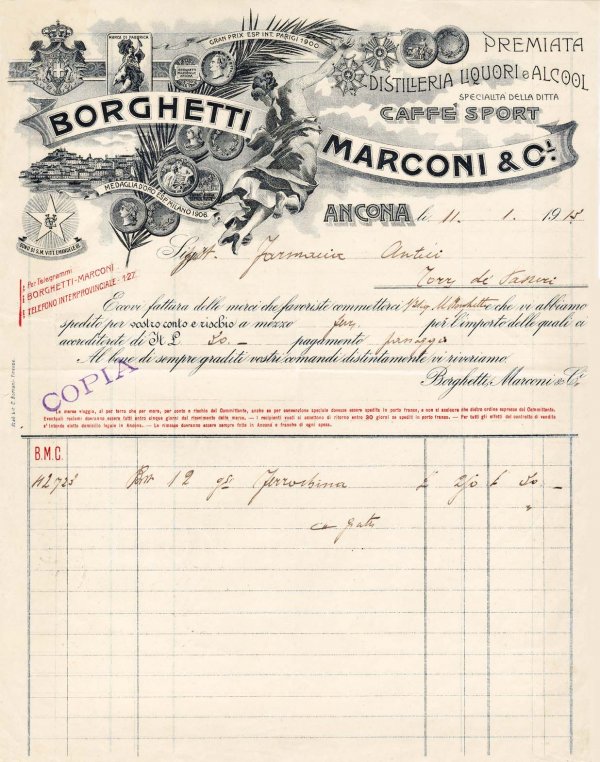 MARCA DI FABBRICA
GRAN PRIX ESP. INT. PARIGI 1900
PREMIATA
DISTILLERIA LIQUORI e ALCOOL
SPECIALITÀ DELLA DITTA
CAFFÈ SPORT
BORGHETTI
MARCONI & C.i
MEDAGLIA D'ORO ESP. MILANO 1906
ANCONA li 11. 1. 1915
DONO DI S.M. VITT. EMANUELE III
Farmacia Antici
Torre di
Per Telegrammi
BORGHETTI-MARCONI
TELEFONO INTERPROVINCIALE - 1-27
Eccovi fattura delle merci che favoriste commetterci che vi abbiamo
spedito per vostro conto e rischio a mezzo per l'importo delle quali ci
accrediterete di It. L. 30.- pagamento
Al bene di sempre graditi vostri comandi distintamente vi riveriamo.
Borghetti, Marconi & C.i
COPIA
La merce viaggia, sì per terra che per mare, per conto e rischio del Committente, anche se per convenzione speciale dovesse essere spedita in porto franco, e non si assicura che dietro ordine espresso del Committente.
Eventuali reclami dovranno essere fatti entro cinque giorni dal ricevimento della merce. - I recipienti vuoti si accettano di ritorno entro 30 giorni se spediti in porto franco. - Per tutti gli effetti del contratto di vendita
s'intende eletto domicilio legale in Ancona. - Le rimesse dovranno essere sempre fatte in Ancona e franche di ogni spesa.
B.M.C.
12 Ferrochina £ 2/50 £ 30 -